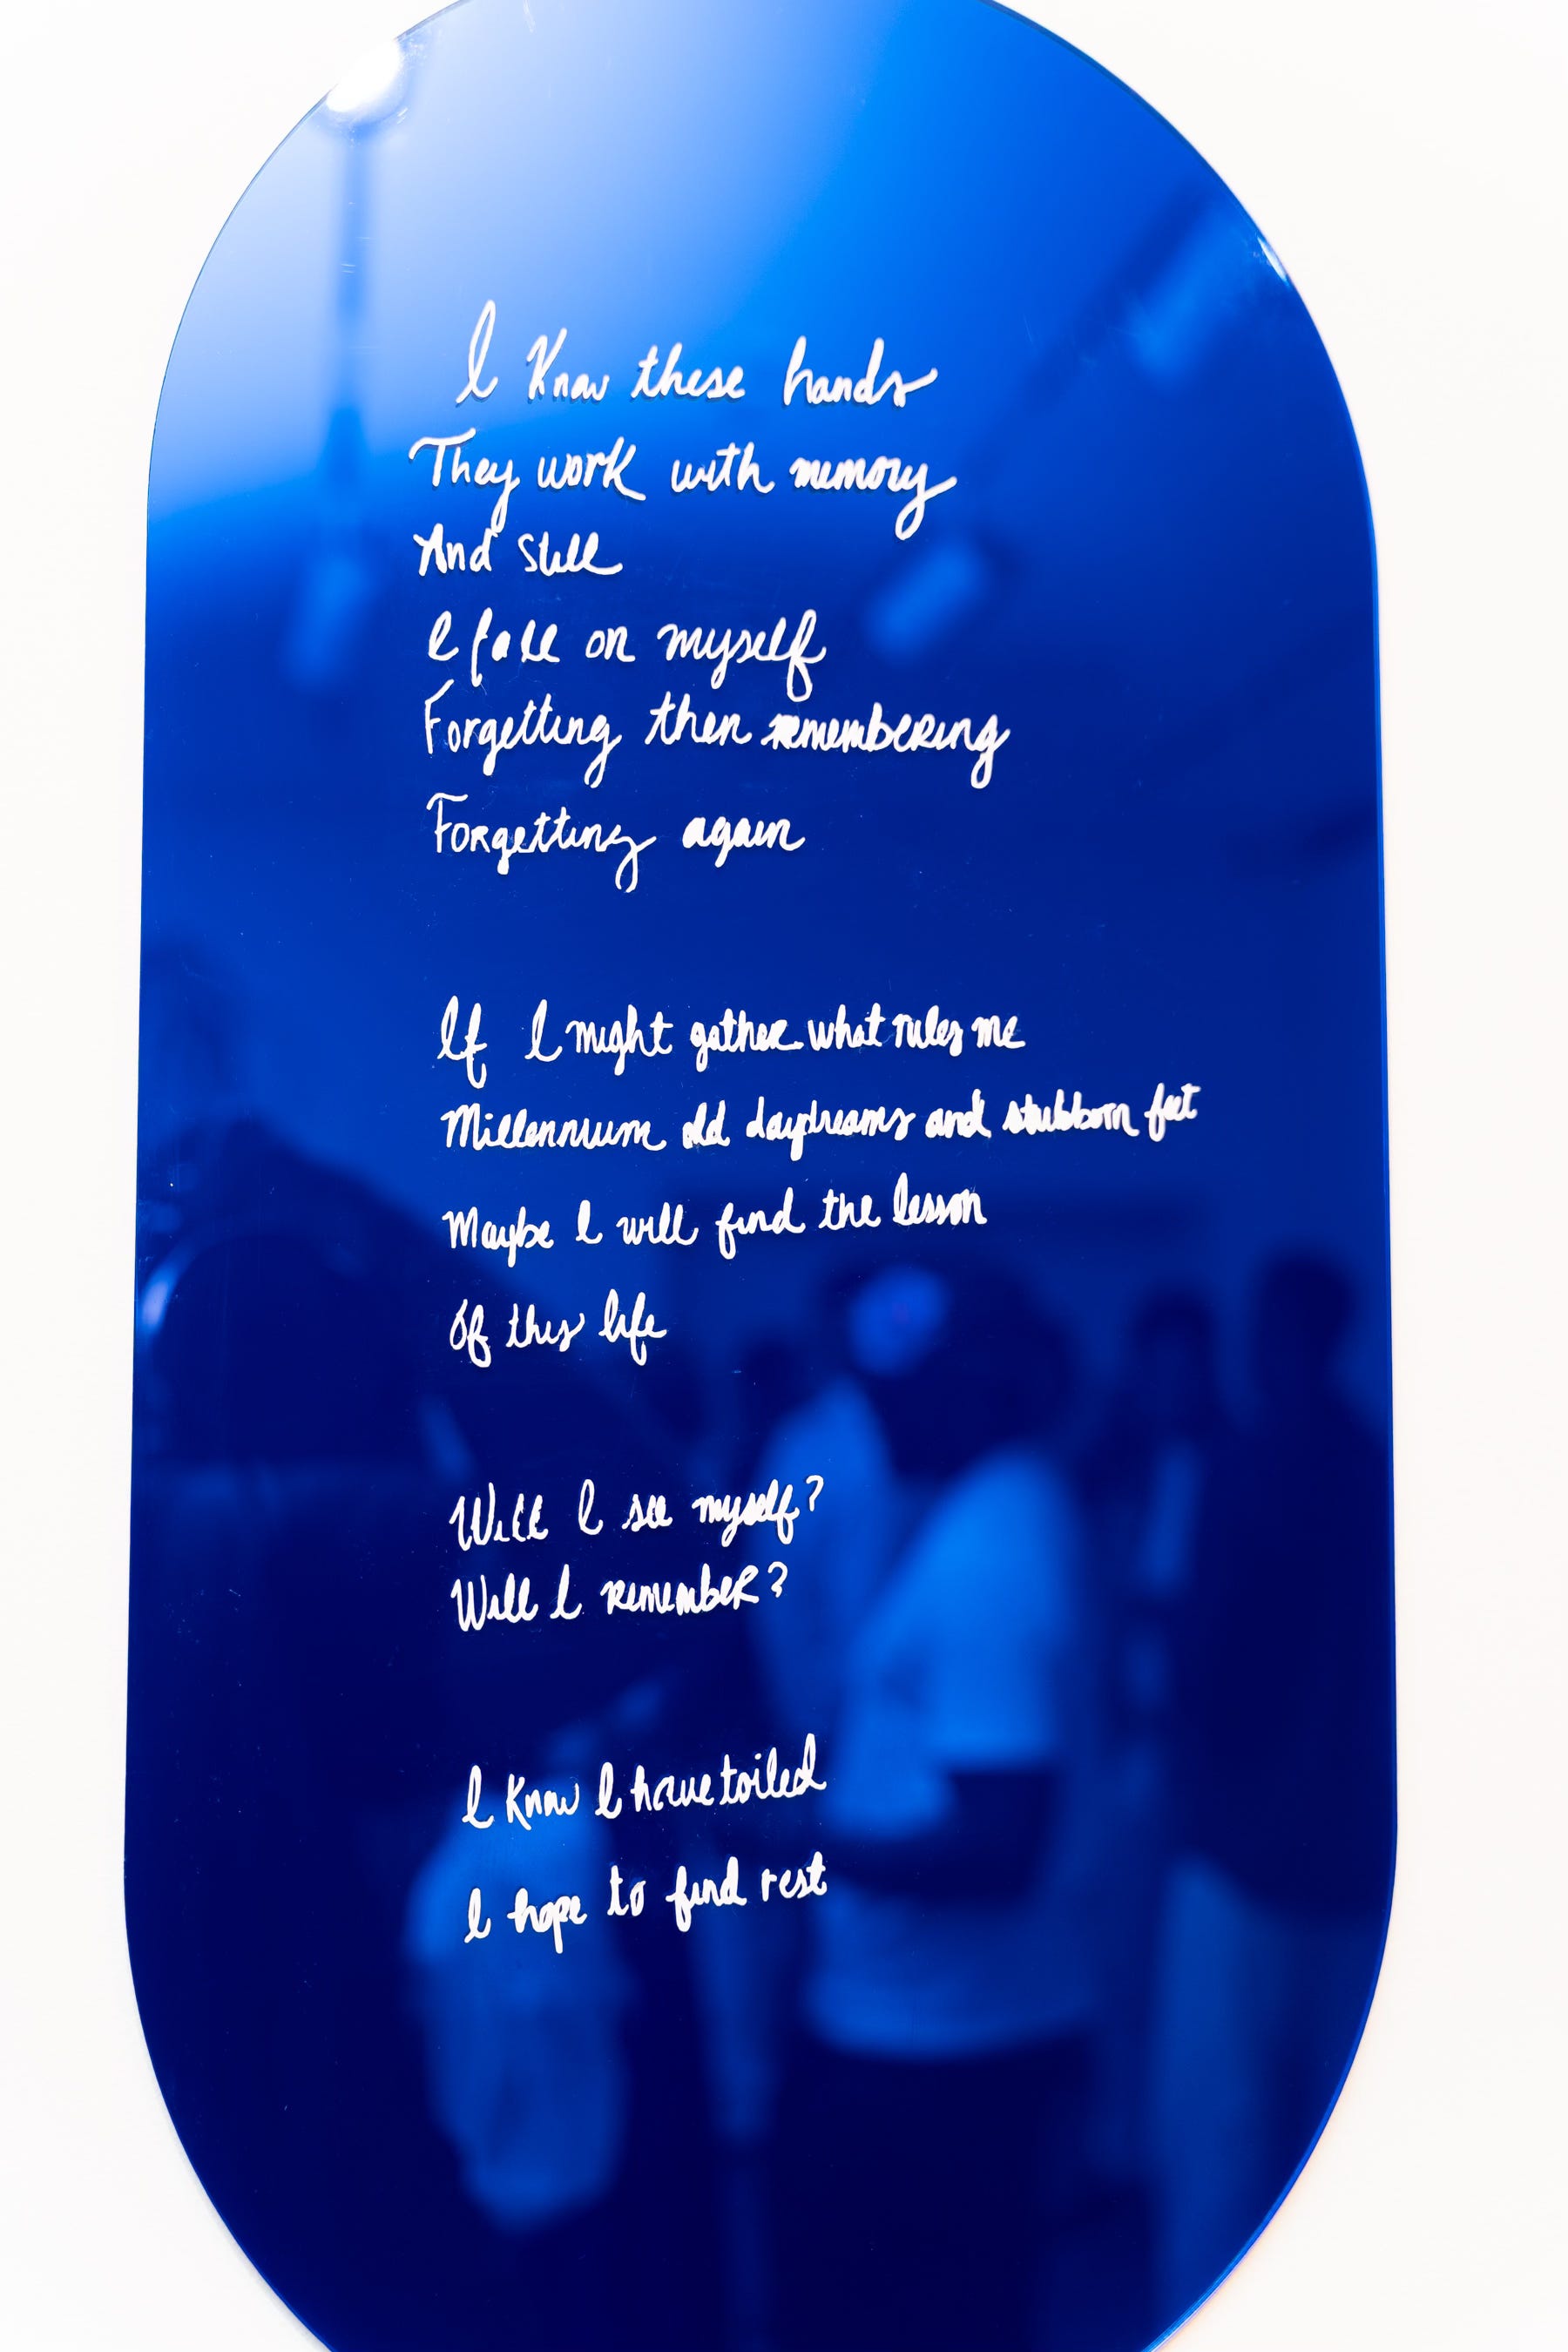 I Know these hands
They work with memory
And Still
I fall on myself
Forgetting then remembering
Forgetting again
If I might gather what rules me
Millennium old daydreams and stubborn feet
Maybe I will find the lesson
Of this life
Will I see myself?
Will I remember?
I Know I have toiled
I hope to find rest